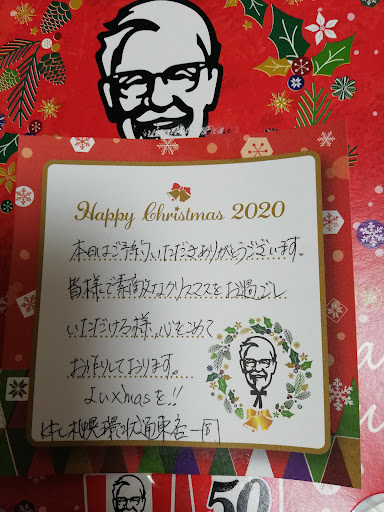 Happy Christmas 2020
本日はご予約いただきありがとうございます。
皆様で素敵なクリスマスをお過ごし
いただける様、心をこめて
お作りしております。
よいXmasを!!
札幌環状通東店一同
50